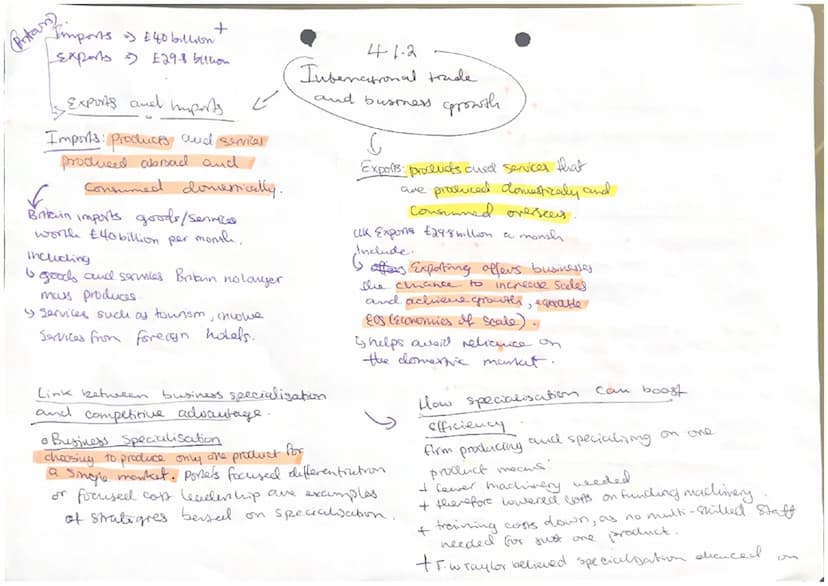 (Britain)
Imports → £40 billion +
Exports → £29.8 billion
4.1.2
International trade
and business growth
Exports and Imports
Imports: products and services
produced abroad and
consumed domestically.
Britain imports goods/services
worth £40 billion per month.
Including
↳ goods and services Britain no longer
mass produces
↳ services such as tourism,
services from foreign hotels.
Exports: products and services that
are produced domestically and
consumed overseas.
UK Exports £29.8 billion a month
Include.
↳ Exporting offers businesses
the chance to increase sales
and achieve growth,
EOS (Economies of Scale).
↳ helps avoid reliance on
the domestic market.
Link between business specialisation
and competitive advantage.
o Business Specialisation
choosing to produce only one product for
a single market. Porter's focused differentiation
or focused cost leadership are examples
of strategies based on specialisation.
How specialisation can boost
efficiency
Firm producing and specialising on one
product means:
+ fewer machinery needed
+ therefore lowered costs on funding machinery.
+ training costs down, as no multi-skilled staff
needed for just one product.
+ F.W Taylor believed specialisation on